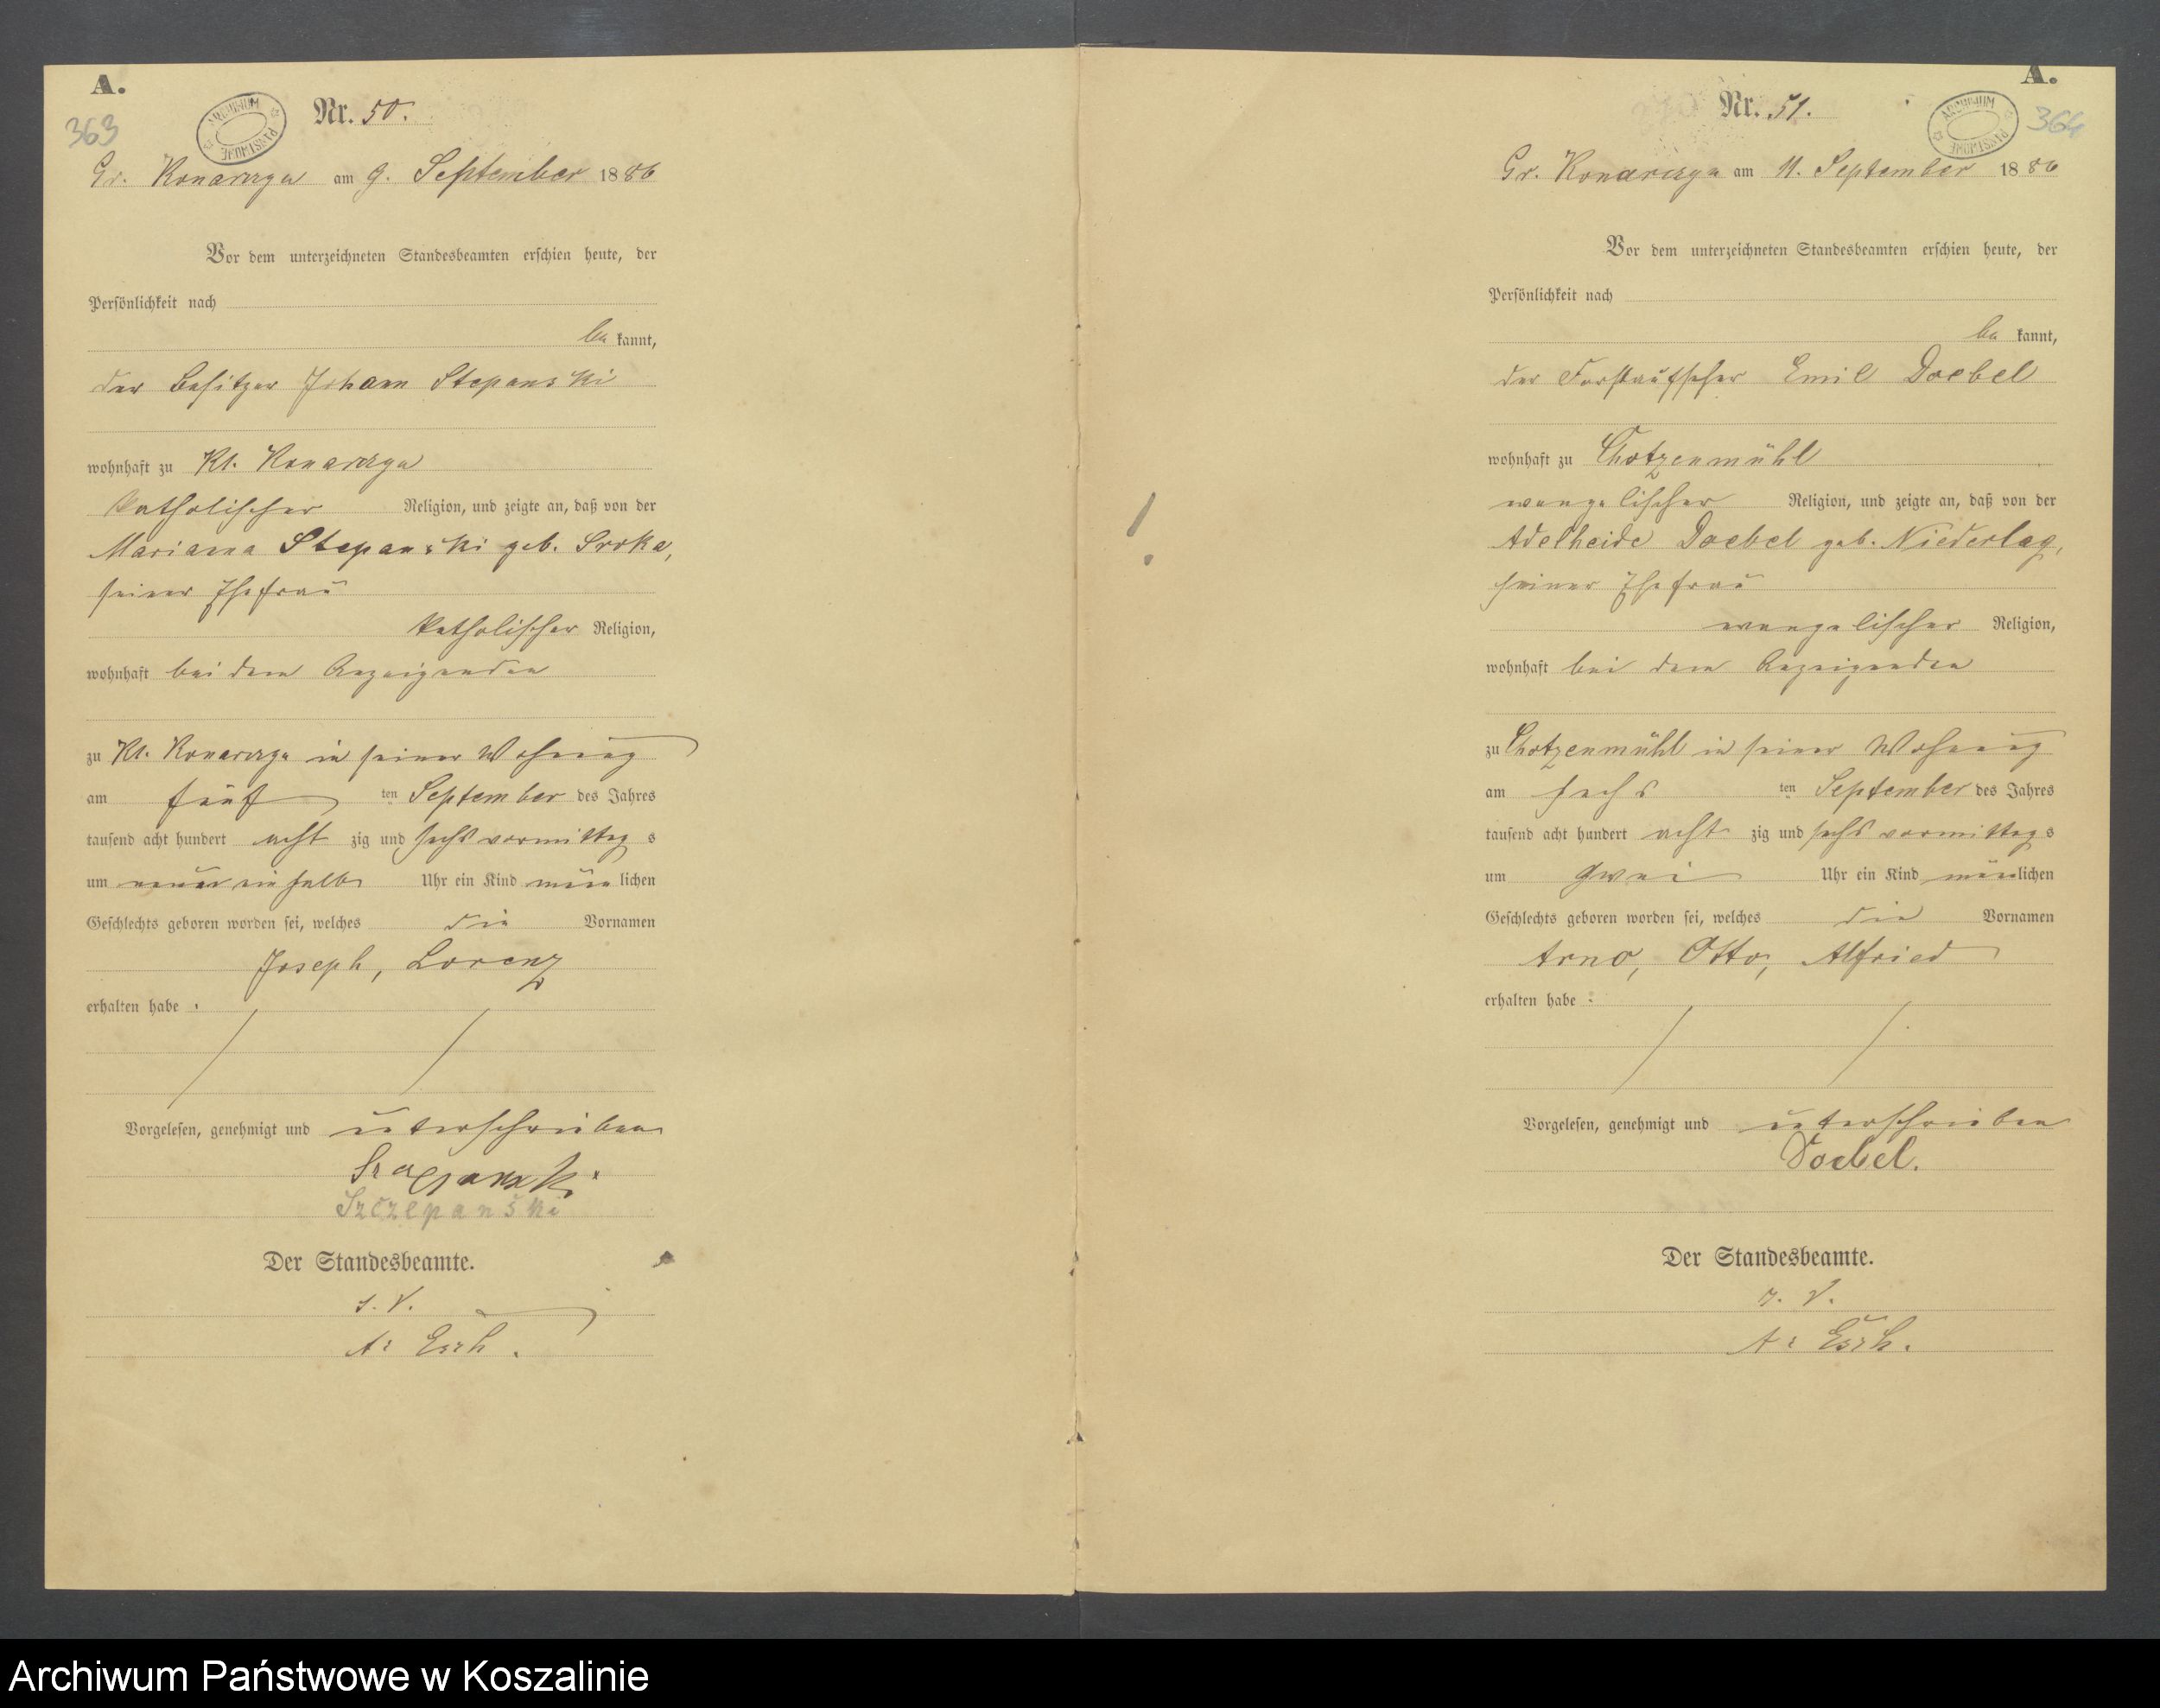 A.
363
ARCHIWUM PAŃSTWOWE
Nr. 50.
Gr. Konarczyn am 9. September 1886
Vor dem unterzeichneten Standesbeamten erschien heute, der
Persönlichkeit nach
be kannt,
der Besitzer Johann Stepanski
wohnhaft zu Kl. Konarczyn
katholischer Religion, und zeigte an, daß von der
Marianna Stepanski geb. Sroka,
seiner Ehefrau
katholischer Religion,
wohnhaft bei dem Anzeigenden
zu Kl. Konarczyn in seiner Wohnung
am fünf ten September des Jahres
tausend acht hundert acht zig und sechs vormittag s
um neun ein halb Uhr ein Kind männ lichen
Geschlechts geboren worden sei, welches die Vornamen
Joseph, Lorenz
erhalten habe.
Vorgelesen, genehmigt und unterschrieben
Szczepanski
Der Standesbeamte.
I. V.
A. Esch.
A.
364
ARCHIWUM PAŃSTWOWE
Nr. 51.
Gr. Konarczyn am 11. September 1886
Vor dem unterzeichneten Standesbeamten erschien heute, der
Persönlichkeit nach
be kannt,
der Forstaufseher Emil Doebel
wohnhaft zu Chotzenmühl
evangelischer Religion, und zeigte an, daß von der
Adelheide Doebel geb. Niederlag,
seiner Ehefrau
evangelischer Religion,
wohnhaft bei dem Anzeigenden
zu Chotzenmühl in seiner Wohnung
am sechs ten September des Jahres
tausend acht hundert acht zig und sechs vormittag s
um zwei Uhr ein Kind männ lichen
Geschlechts geboren worden sei, welches die Vornamen
Arno, Otto, Alfried
erhalten habe.
Vorgelesen, genehmigt und unterschrieben
Doebel.
Der Standesbeamte.
I. V.
A. Esch.
!
Archiwum Państwowe w Koszalinie